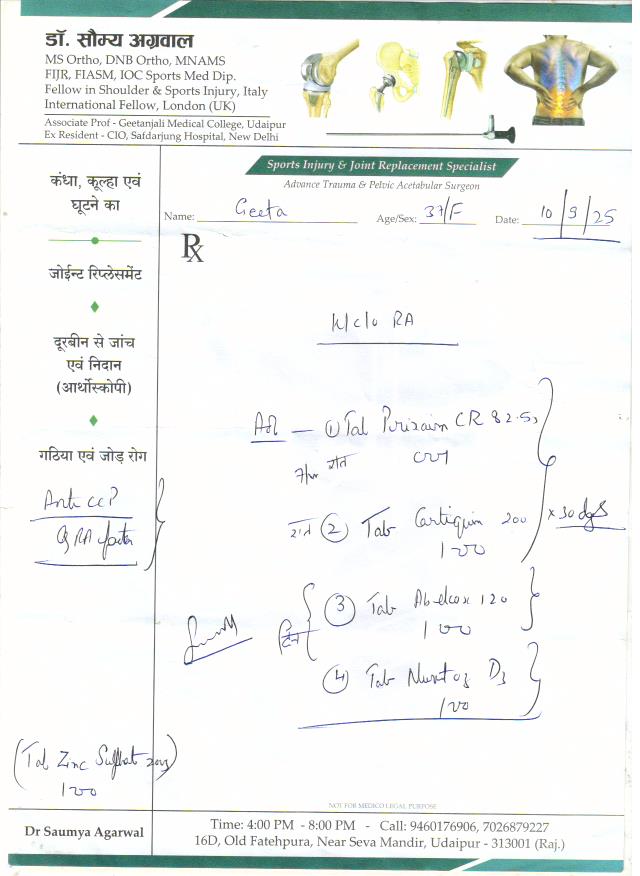 डॉ. सौम्य अग्रवाल
MS Ortho, DNB Ortho, MNAMS
FIJR, FIASM, IOC Sports Med Dip.
Fellow in Shoulder & Sports Injury, Italy
International Fellow, London (UK)
Associate Prof - Geetanjali Medical College, Udaipur
Ex Resident - CIO, Safdarjung Hospital, New Delhi
Sports Injury & Joint Replacement Specialist
Advance Trauma & Pelvic Acetabular Surgeon
Name: Geeta Age/Sex: 37/F Date: 10/9/25
कंधा, कूल्हा एवं
घूटने का
जोईन्ट रिप्लेसमेंट
दूरबीन से जांच
एवं निदान
(आर्थोस्कोपी)
गठिया एवं जोड़ रोग
Anti CCP
RA factor
Rx
K/c/o RA
① Tab CR 82.5
रात
रात ② Tab Cartiquin 200 x 30 days
1 00
③ Tab 120
1 00
④ Tab D3
1 00
(Tab Zinc Sulphate)
1 00
NOT FOR MEDICO LEGAL PURPOSE
Dr Saumya Agarwal
Time: 4:00 PM - 8:00 PM - Call: 9460176906, 7026879227
16D, Old Fatehpura, Near Seva Mandir, Udaipur - 313001 (Raj.)